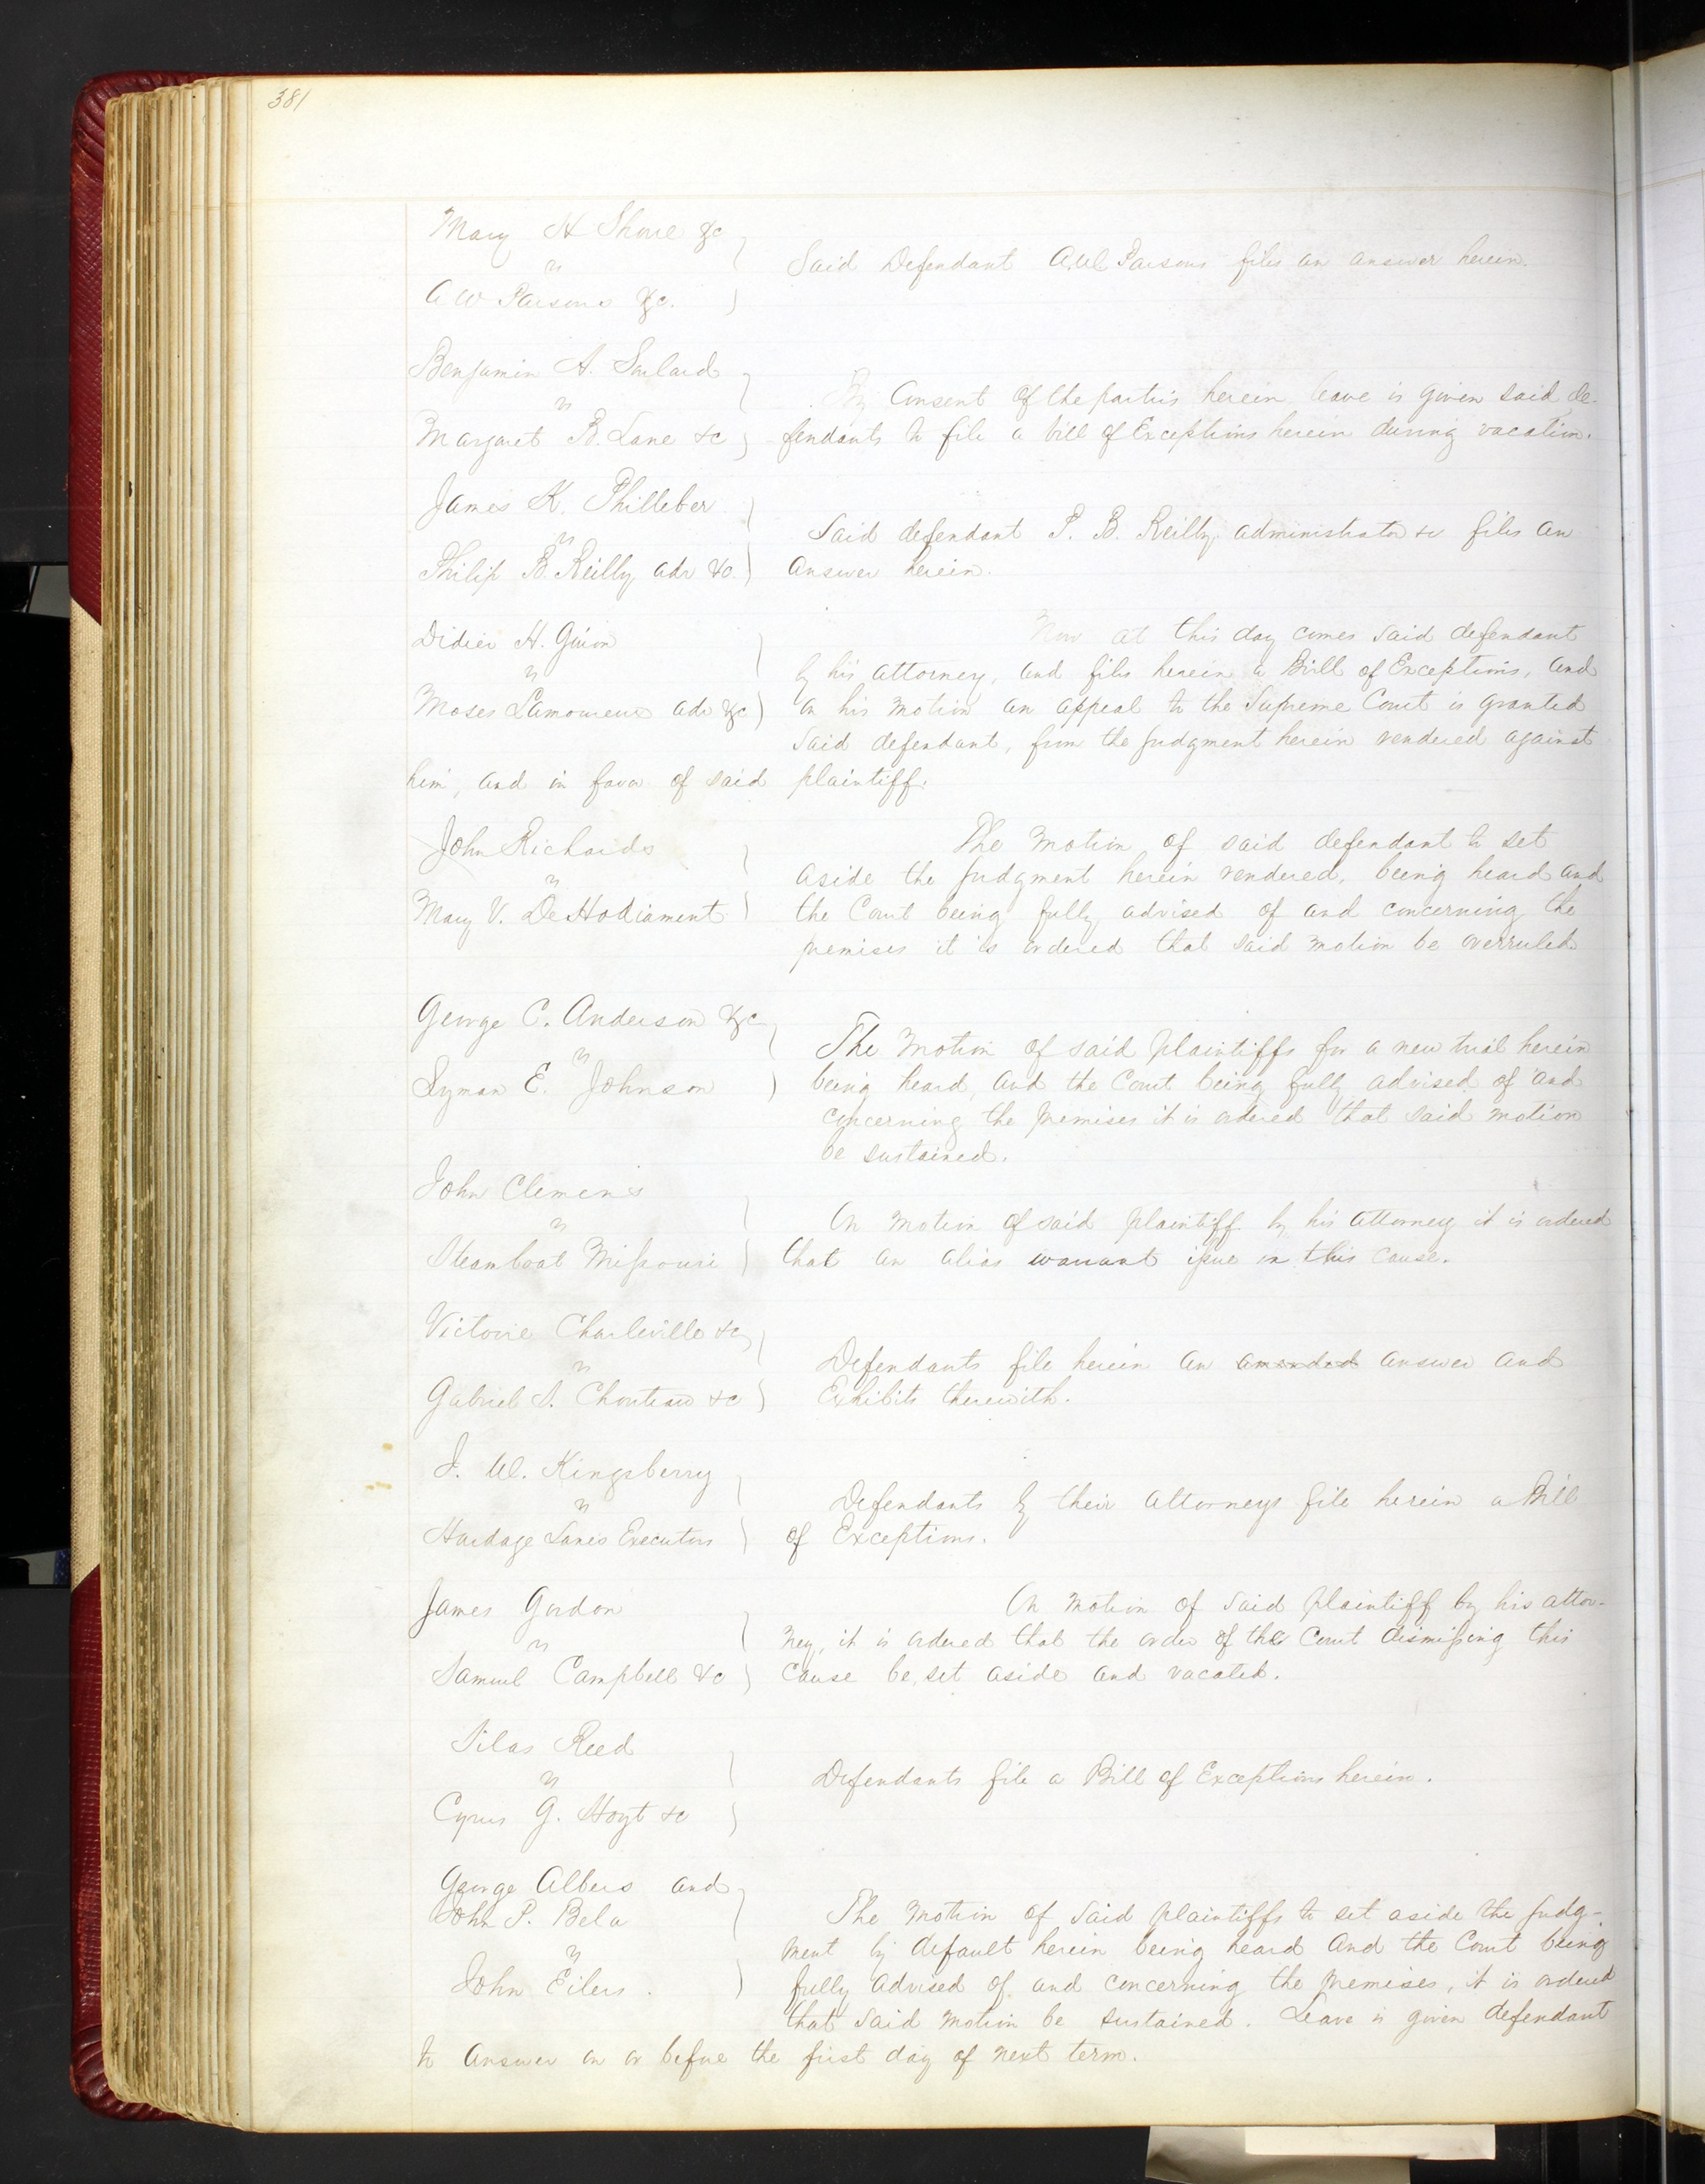 381
Mary H Shore &c
vs
A W Parsons &c.
Said Defendant A. W. Parsons files an answer herein.
Benjamin A. Soulard
vs
Margaret B. Lane &c
By Consent of the parties herein leave is given said de-
fendants to file a bill of Exceptions herein during vacation.
James K. Philleber
vs
Philip B. Reilly adr &c.
Said defendant P. B. Reilly, administrator &c files an
answer herein.
Didier H. Guion
vs
Moses Lamoureux adr &c
Now at this day comes said defendant
by his attorney, and files herein a Bill of Exceptions, and
on his motion an appeal to the Supreme Court is granted
said defendant, from the judgment herein rendered against
him, and in favor of said plaintiff.
John Richards
vs
Mary V. DeHodiament
The motion of said defendant to set
aside the judgment herein rendered, being heard and
the Court being fully advised of and concerning the
premises it is ordered that said motion be overruled
George C. Anderson &c
vs
Lyman E. Johnson
The motion of said plaintiffs for a new trial herein
being heard, and the Court being fully advised of and
concerning the premises it is ordered that said motion
be sustained.
John Clemens
vs
Steamboat Missouri
On motion of said plaintiff by his attorney it is ordered
that an alias warrant issue in this cause.
Victorie Charleville &c
vs
Gabriel S. Chouteau &c
Defendants file herein an amended answer and
Exhibits therewith.
J. W. Kingsberry
vs
Hardage Lanes Executors
Defendants by their attorneys file herein a Bill
of Exceptions.
James Gordon
vs
Samuel Campbell &c
On motion of said plaintiff by his attor-
ney, it is ordered that the order of the Court dismissing this
cause be set aside and vacated.
Silas Reed
vs
Cyrus G. Hoyt &c
Defendants file a Bill of Exceptions herein.
George Albers and
John P. Bela
vs
John Eilers.
The motion of said plaintiffs to set aside the judg-
ment by default herein being heard and the Court being
fully advised of and concerning the premises, it is ordered
that said motion be sustained. Leave is given defendant
to answer on or before the first day of next term.